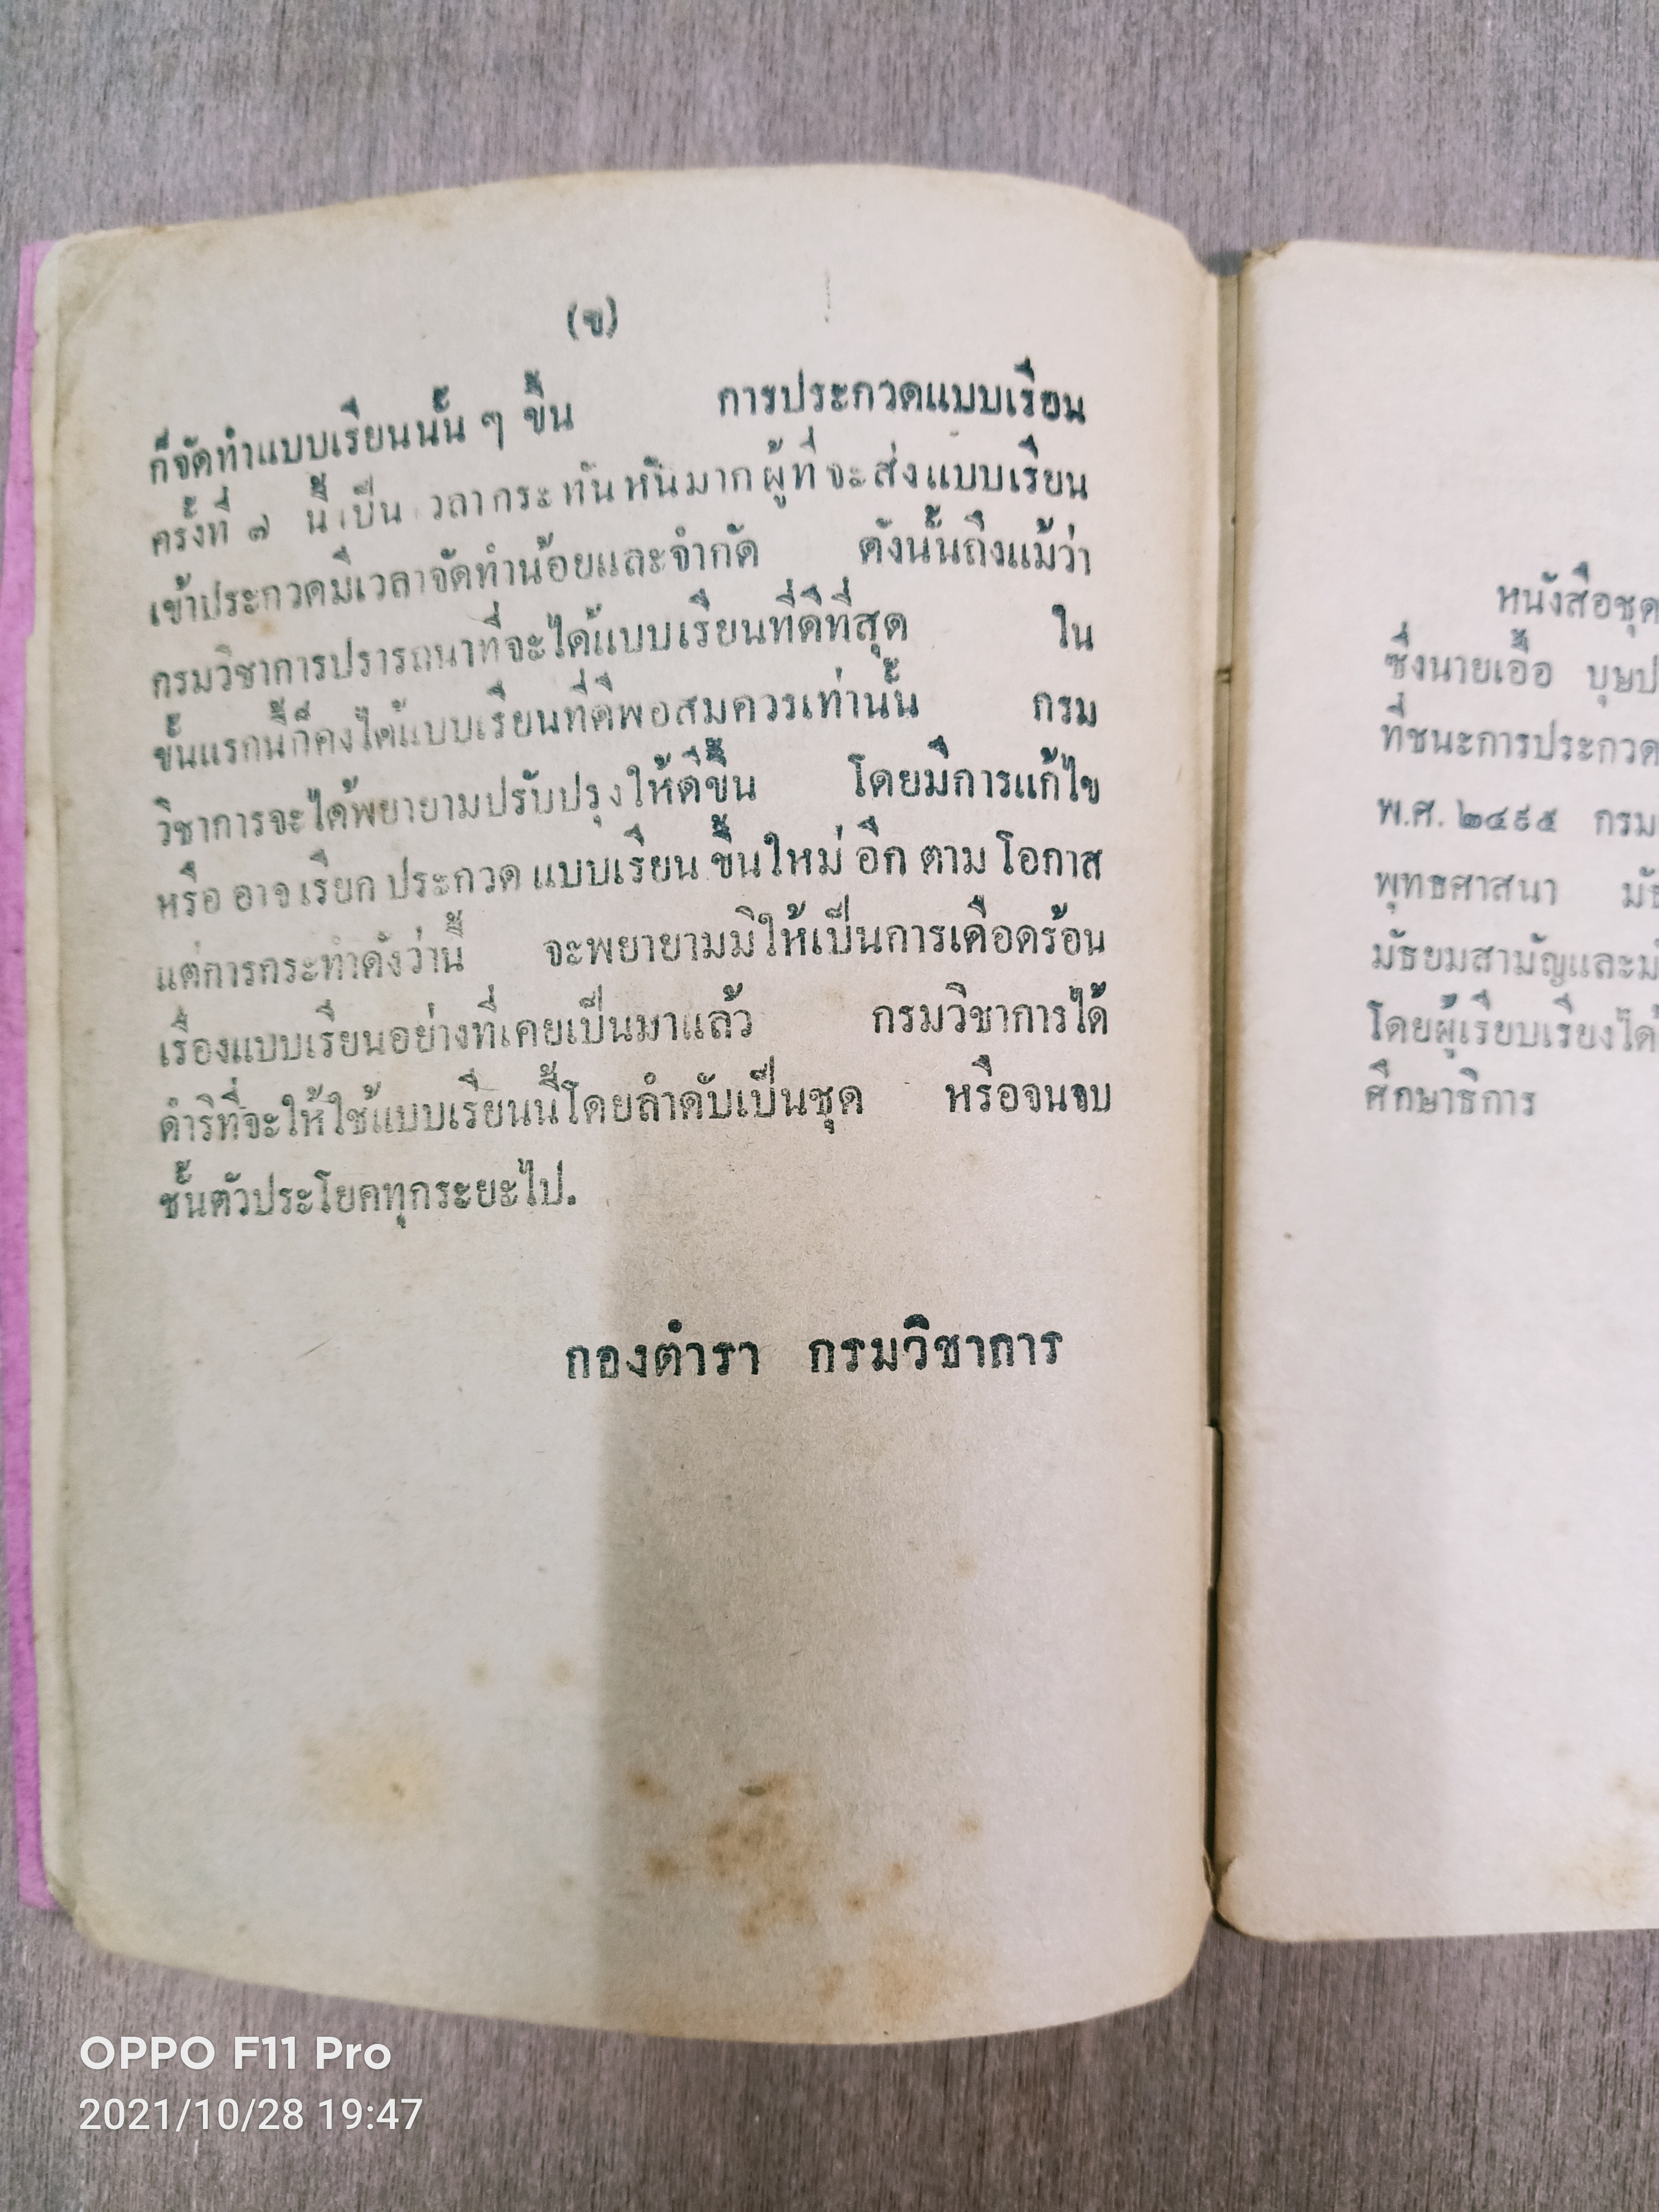 (ข)
ก็จัดทำแบบเรียนนั้น ๆ ขึ้น การประกวดแบบเรียน
ครั้งที่ ๗ นี้เป็นเวลากระทันหันมาก ผู้ที่จะส่งแบบเรียน
เข้าประกวดมีเวลาจัดทำน้อยและจำกัด ดังนั้นถึงแม้ว่า
กรมวิชาการปรารถนาที่จะได้แบบเรียนที่ดีที่สุด ใน
ขั้นแรกนี้ก็คงได้แบบเรียนที่ดีพอสมควรเท่านั้น กรม
วิชาการจะได้พยายามปรับปรุงให้ดีขึ้น โดยมีการแก้ไข
หรือ อาจ เรียก ประกวด แบบเรียน ขึ้นใหม่ อีก ตาม โอกาส
แต่การกระทำดังว่านี้ จะพยายามมิให้เป็นการเดือดร้อน
เรื่องแบบเรียนอย่างที่เคยเป็นมาแล้ว กรมวิชาการได้
ดำริที่จะให้ใช้แบบเรียนนี้โดยลำดับเป็นชุด หรือจนจบ
ชั้นตัวประโยคทุกระยะไป.
กองตำรา กรมวิชาการ
หนังสือชุด
ซึ่งนายเอื้อ บุษป
ที่ชนะการประกวด
พ.ศ. ๒๔๙๕ กรม
พุทธศาสนา มัธ
มัธยมสามัญและม
โดยผู้เรียบเรียงได้
ศึกษาธิการ
OPPO F11 Pro
2021/10/28 19:47